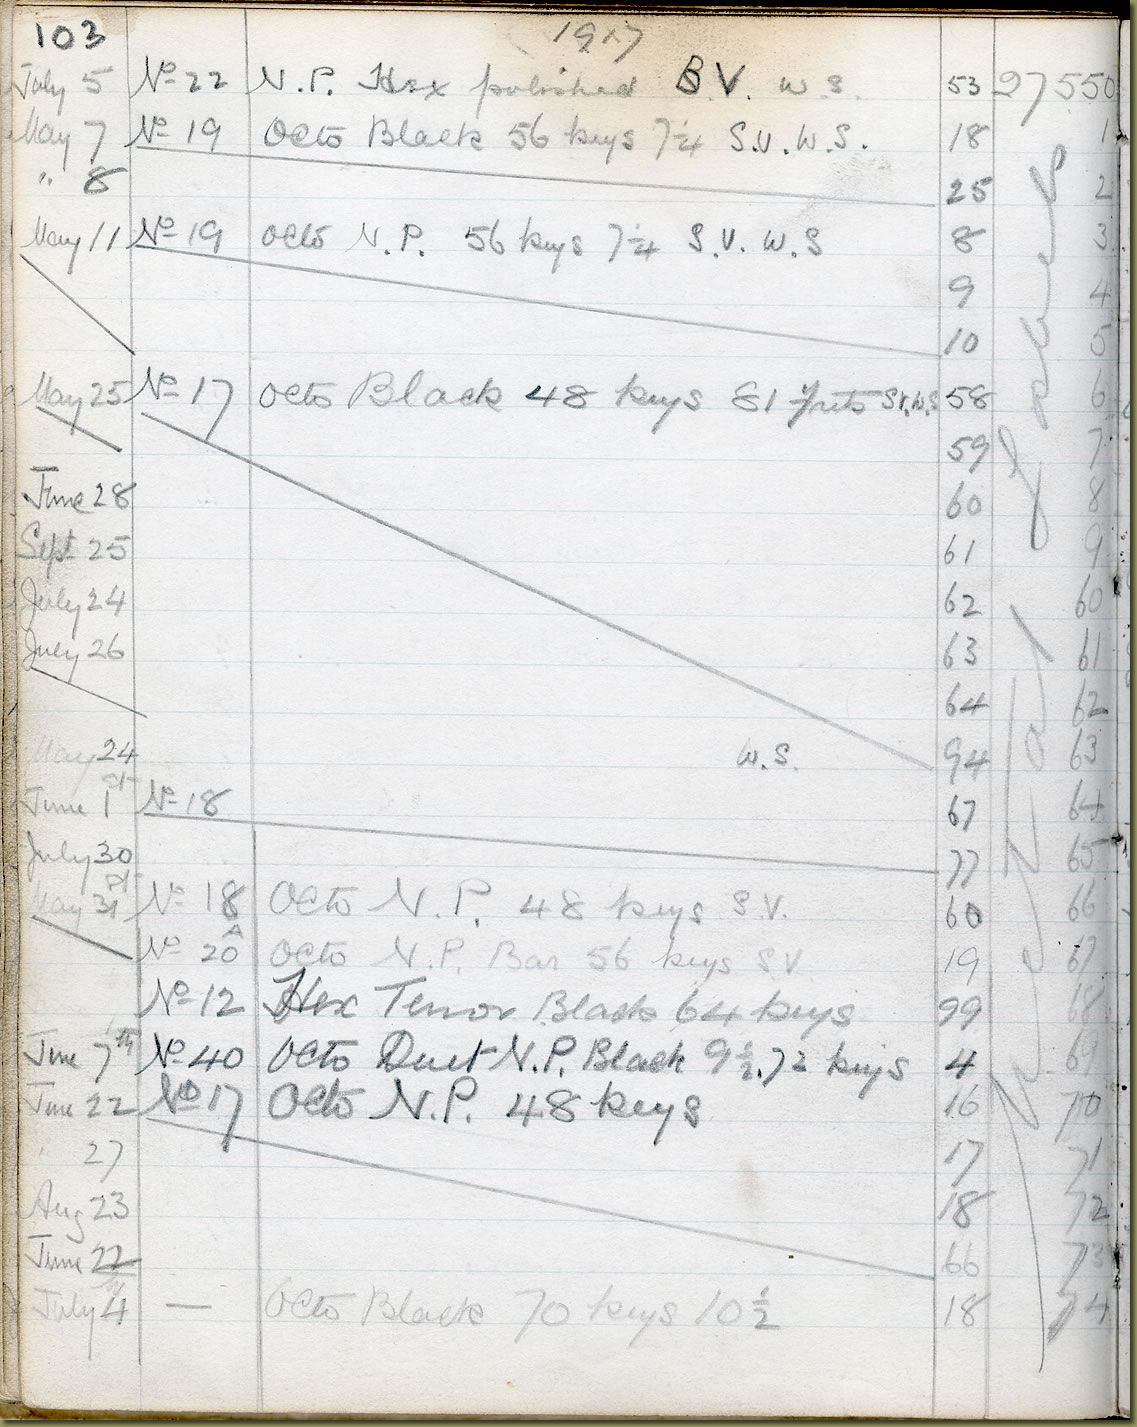 103 1917
July 5 No 22 N.P. Hex polished B.V. W.S. 53 27550
May 7 No 19 Octo Black 56 keys 7¼ S.V. W.S. 18 1
" 8 25 2
May 11 No 19 Octo N.P. 56 keys 7¼ S.V. W.S 8 3
9 4
10 5
May 25 No 17 Octo Black 48 keys 81 S.V. W.S 58 6
59 7
June 28 60 8
Sept 25 61 9
July 24 62 60
July 26 63 61
64 62
May 24 W.S. 94 63
June 1st No 18 67 64
July 30 77 65
May 31st No 18 Octo N.P. 48 keys S.V. 60 66
No 20A Octo N.P. Bar 56 keys S.V 19 67
No 12 Hex Tenor Black 64 keys 99 68
June 7th No 40 Octo Duet N.P. Black 9½. 72 keys 4 69
June 22 No 17 Octo N.P. 48 keys 16 70
" 27 17 71
Aug 23 18 72
June 22 66 73
July 4 — Octo Black 70 keys 10½ 18 74